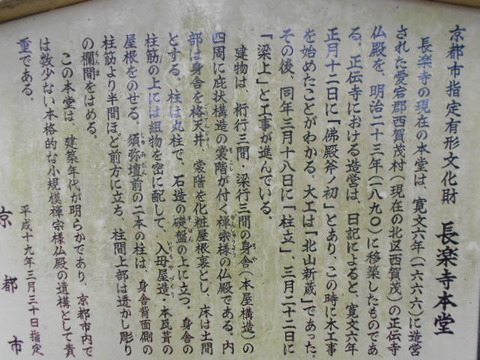 京都市指定有形文化財 長楽寺本堂
長楽寺の現在の本堂は、寛文六年(一六六六)に造営
された愛宕郡西賀茂村(現在の北区西賀茂)の正伝寺
仏殿を、明治二十三年(一八九〇)に移築したものであ
る。正伝寺における造営は、日記によると、寛文六年
正月十二日に「佛殿斧ノ初」とあり、この時に木工事
を始めたことがわかる。大工は「北山新蔵」であった。
その後、同年三月十八日に「柱立」、三月二十二日に
「梁上」と工事が進んでいる。
建物は、桁行三間、梁行三間の身舎(本屋構造)の
四周に庇状構造の裳階が付く禅宗様の仏殿である。内
部は身舎を棹天井、裳階を化粧屋根裏とし、床は土間
とする。柱は丸柱で、石造の礎盤の上に立つ。身舎の
柱筋の上には組物を密に配して、入母屋造・本瓦葺の
屋根をのせる。須弥壇前の二本の柱は、身舎背面側の
柱筋より半間ほど前方に立ち、柱間上部は透かし彫り
の欄間をはめる。
この本堂は、建築年代が明らかであり、京都市内で
は数少ない本格的な小規模禅宗様仏殿の遺構として貴
重である。
平成十九年三月三十日指定
京都市